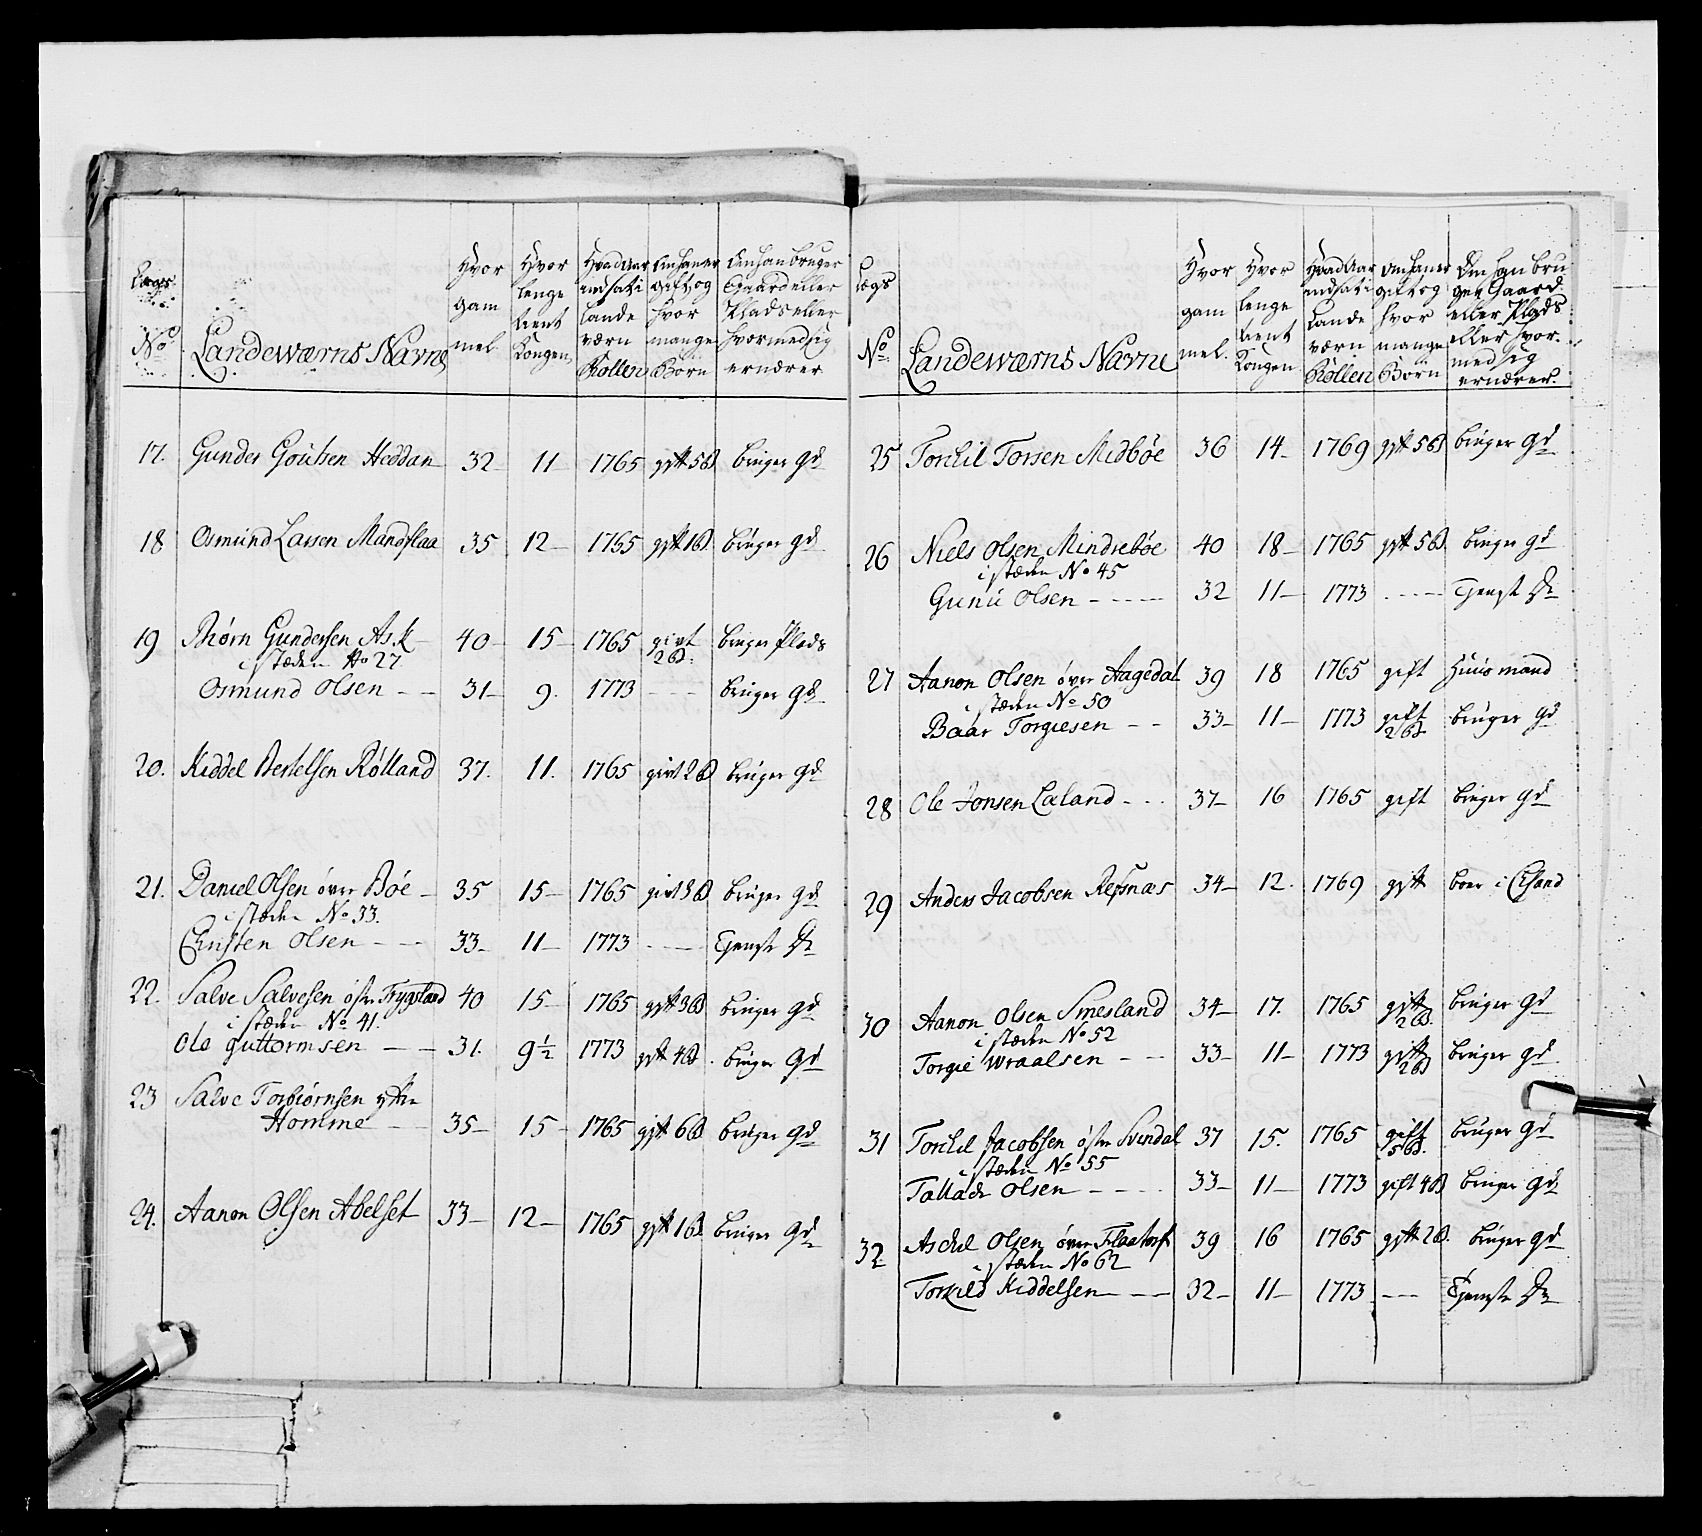 Lægs
No
Landeværns Navne
Hvor gam mel.
Hvor lenge tient Kongen
Hvad Aar indsat i Lande værn Rollen
Om han er gift og hvor mange Børn
Om han bruger Gaard eller Plads eller hvormed sig ernærer
17. Gunder Goutsen Heddan 32 11 1765 gift 5 B bruger Gd
18 Osmund Larsen Mandflaa 35 12 1765 gift 1 B bruger gd
19 Biørn Gundersen Ask 40 15 1765 givt 2 B. bruger Plads
i stæden No 27
Osmund Olsen 31 9. 1773 bruger Gd
20. Kiddel Bertelsen Røiland 37. 11. 1765 givt 2 B bruger Gd
21. Daniel Olsen øver Bøe 35 15 1765 givt 3 B bruger Gd
i stæden No 33.
Christen Olsen 33 11 1773 Tienest Dr
22. Salve Salvesen østr Trygsland 40 15 1765 gift 3 B bruger Gd
i stæden No 41.
Ole guttormsen 31. 9½ 1773 gift 4 B. bruger Gd
23 Salve Torbiørnsen ytre
Homme 35 15 1765 gift 6 B bruger Gd
24. Aanon Olsen Abelset 33 12 1765 gift 1 B bruger Gd
Lægs
No
Landeværns Navne
Hvor gam mel.
Hvor lenge tient Kongen
Hvad Aar indsat i Lande værn Rollen
Om han er gift og hvor mange Børn
Om han bru ger Gaard eller Plads eller hvor med sig ernærer.
25 Torkil Torsen Midbøe 36 14 1769 gift 5 B bruger Gd
26 Niels Olsen Mindrebøe 40 18 1765 gift 5 B. bruger gd
i stæden No 45
Gunu Olsen 32 11 1773 Tienest Dr
27 Aanon Olsen øver Aagedal 39 18 1765 gift Huusmand
i stæden No 50
Baar Torgiesen 33 11 1773 gift 2 B bruger Gd
28 Ole Jonsen Laland 37 16 1765 gift bruger Gd
29 Anders Jacobsen Refsnæs 34 12. 1769 gift boer i
30 Aanon Olsen Smesland 34 17. 1765 gift 2 B. bruger Gd
i stæden No 52
Torgie Wraalsen 33 11 1773 gift 2 B bruger gd
31 Torkil Jacobsen østr Svindal 37 15. 1765 gift 5 B. bruger Gd
i stæden No 55
Tallack Olsen 33 11 1773 gift 4 B bruger Gd
32 Aschil Olsen øver 39 16 1765 gift 2 B. bruger gd
i stæden No 62
Torkild Kiddelsen 32 11 1773 Tieneste Dr